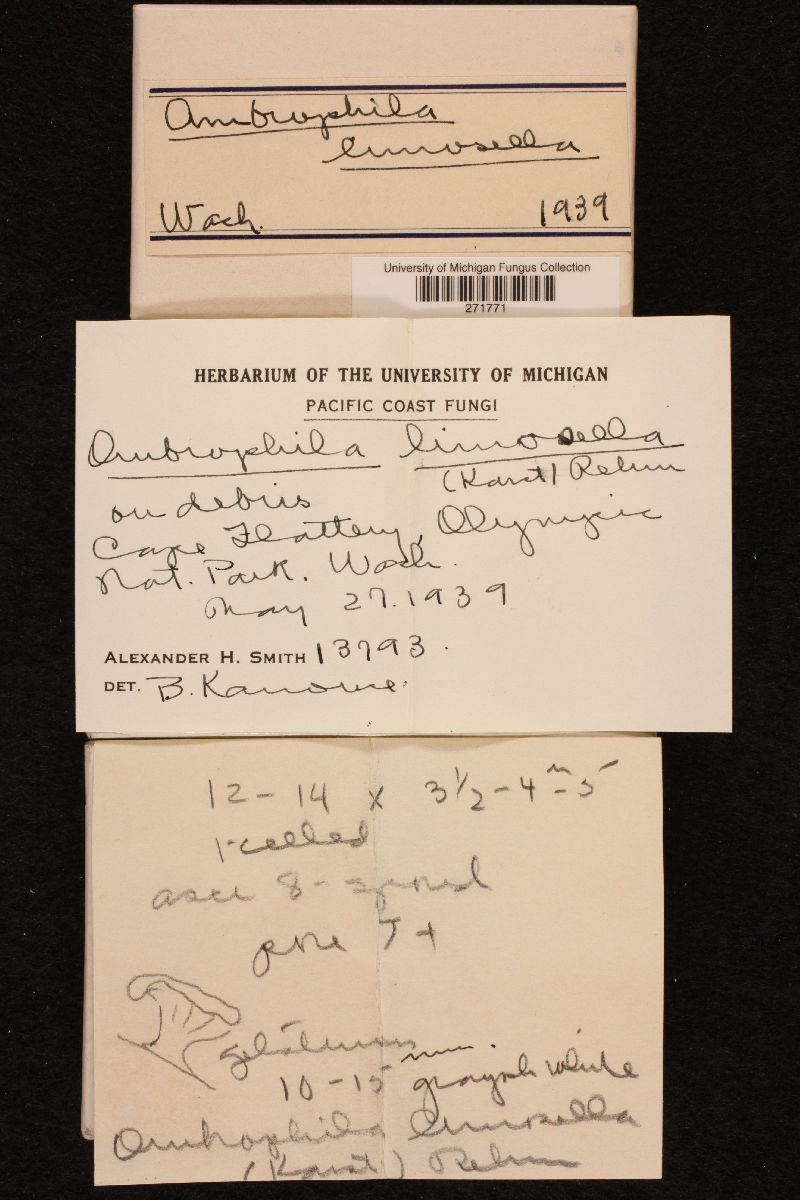 Ombrophila
limosella
Wash. 1939
University of Michigan Fungus Collection
271771
HERBARIUM OF THE UNIVERSITY OF MICHIGAN
PACIFIC COAST FUNGI
Ombrophila limosella
(Karst) Rehm
on debris
Cape Flattery, Olympic
Nat. Park. Wash.
May 27. 1939
ALEXANDER H. SMITH 13793.
DET. B. Kanouse.
12 - 14 x 3 1/2 - 4 - 5
1-celled
asci 8-spored
pore I +
gelatinous
10 - 15 mm. grayish white
Ombrophila limosella
(Karst) Rehm